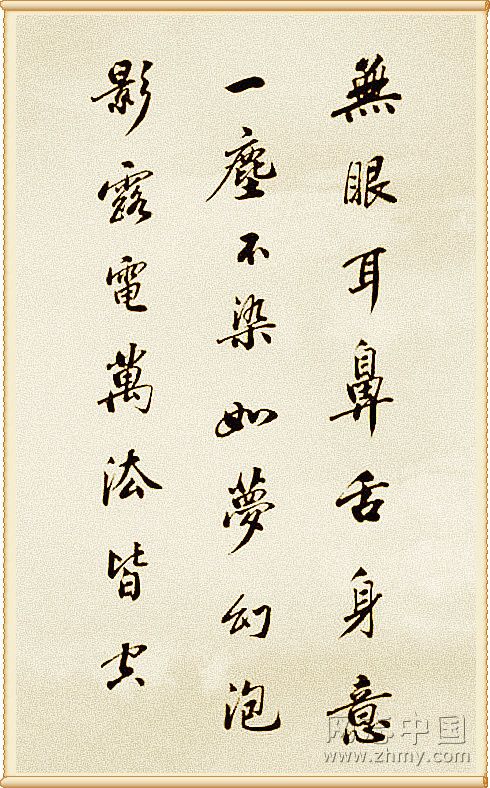 無眼耳鼻舌身意
一塵不染如夢幻泡
影露電萬法皆空
网名中国
www.zhmy.com